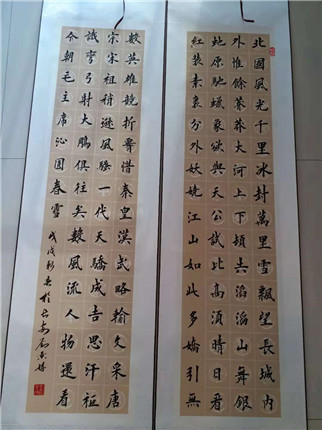 北國風光千里冰封萬里雪飄望長城內
外惟餘莽莽大河上下頓失滔滔山舞銀
蛇原馳蠟象欲與天公試比高須晴日看
紅裝素裹分外妖嬈江山如此多嬌引無
數英雄競折腰惜秦皇漢武略輸文采唐
宗宋祖稍遜風騷一代天驕成吉思汗祗
識彎弓射大鵰俱往矣數風流人物還看
今朝毛主席沁園春雪戊戌秋